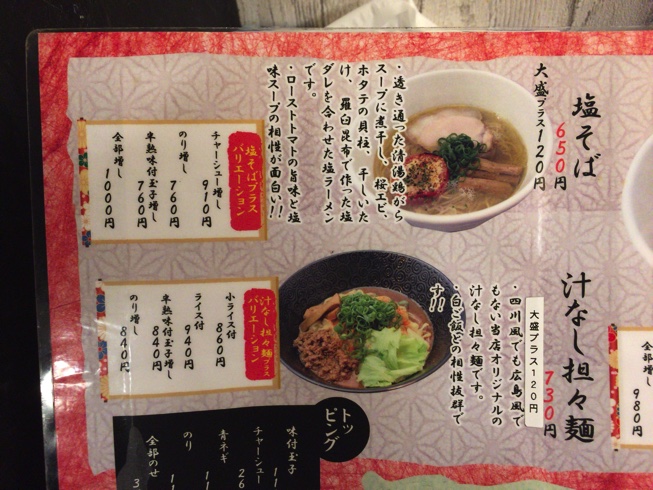 塩そば
650円
大盛プラス120円
・透き通った清湯鶏がら
スープに煮干し、桜エビ、
ホタテの貝柱、干しいた
け、羅臼昆布で作った塩
ダレを合わせた塩ラーメン
です。
・ローストトマトの旨味と塩
味スープの相性が面白い!!
塩そばプラス
バリエーション
チャーシュー増し 910円
のり増し 760円
半熟味付玉子増し 760円
全部増し 1000円
汁なし担々麺
730円
大盛プラス120円
・四川風でも広島風で
もない当店オリジナルの
汁なし担々麺です。
・白ご飯との相性抜群で
す!!
汁なし担々麺プラス
バリエーション
小ライス付 860円
ライス付 940円
半熟味付玉子増し 840円
のり増し 840円
全部増し 980円
トッピング
味付玉子
チャーシュー
青ネギ
のり
全部のせ